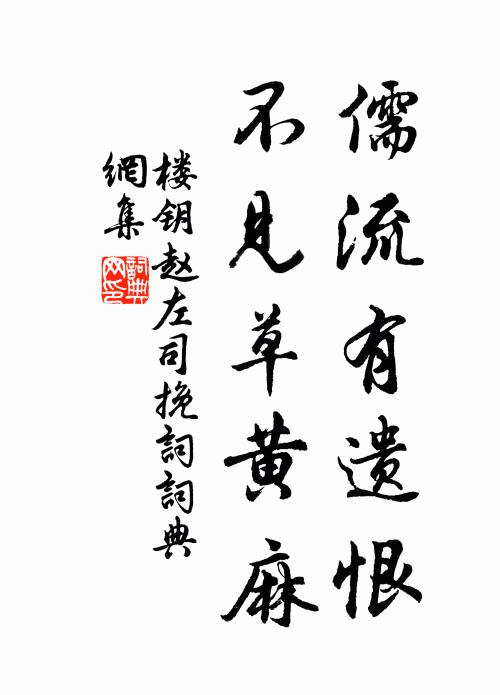 儒流有遗恨
不见草黄麻
楼钥赵左司挽詞詞典
網集
詞典
网印